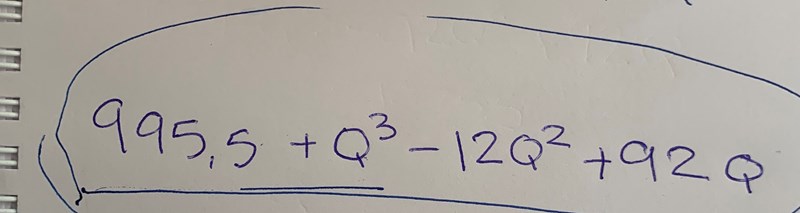 995,5 + Q³ - 12Q² + 92Q